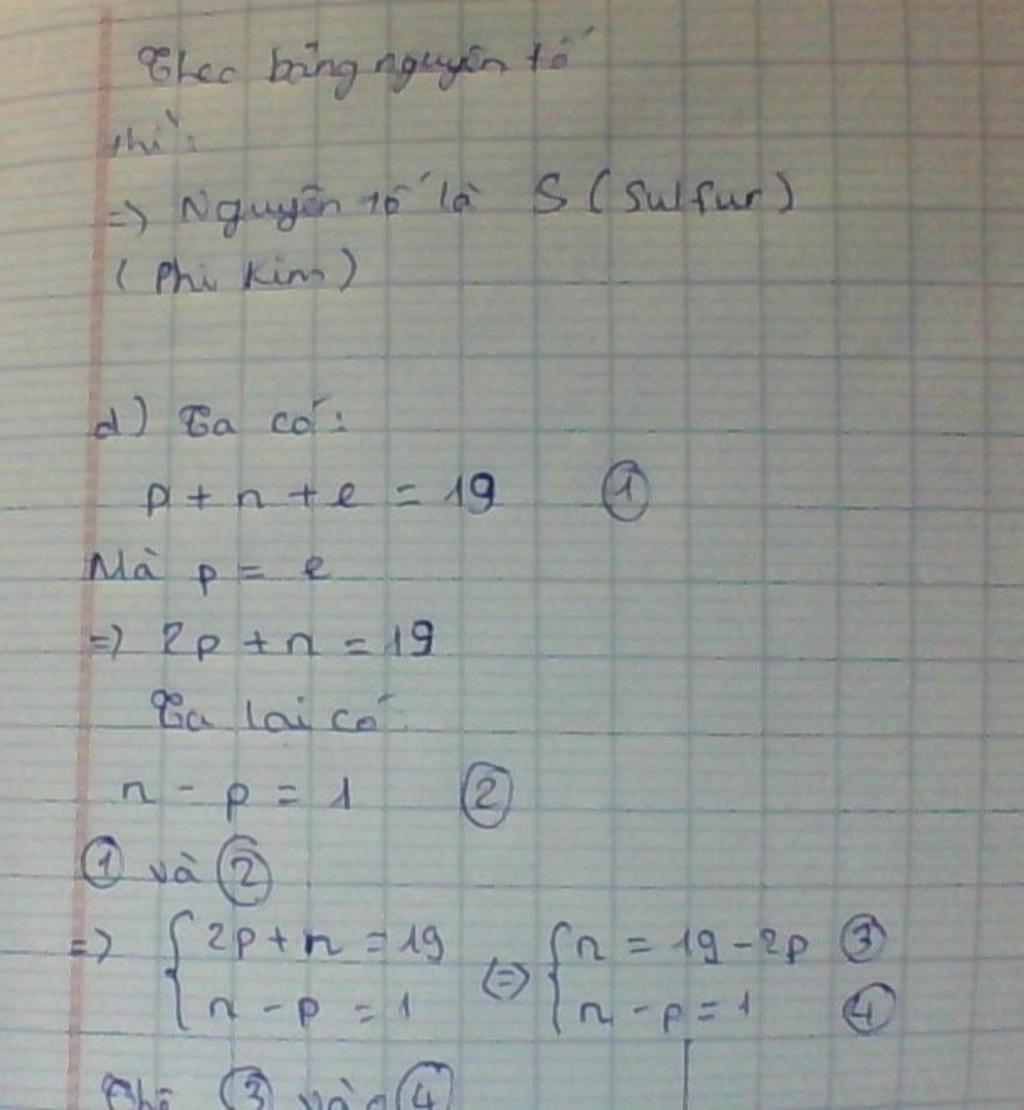 Theo bảng nguyên tố
thì:
=> Nguyên tố là S (Sulfur)
(Phi kim)
d) Ta có:
p + n + e = 19 ①
Mà p = e
=> 2p + n = 19
Ta lại có
n - p = 1 ②
① và ②
=> { 2p + n = 19 <=> { n = 19 - 2p ③
n - p = 1 n - p = 1 ④
Thế ③ vào ④